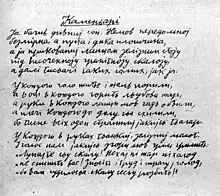 Каменярі
Я бачив дивний сон. Немов передомною
безмірна, а пуста і дика площина,
а я прикований ланцем зелізним стою
під височенною гранітною скалою,
а далі тисячі таких самих, як я.
У кождого чоло життє і жаль порили,
а в оці в кождого горить любови жар,
а руки в кождого ланцюг мов гадь обвили,
а плечі кождого додолу ся схилили,
бо давить всіх один страшний якийсь тягар.
У кождого в руках тяжкий, зелізний молот,
І голос нам згори мов грім гримить:
„Лупайте сю скалу! Нехай ні жар ні холод
не спинить вас! Зносіть і труд і спрагу, голод,
бо вам призначено скалу сесю розбить!"